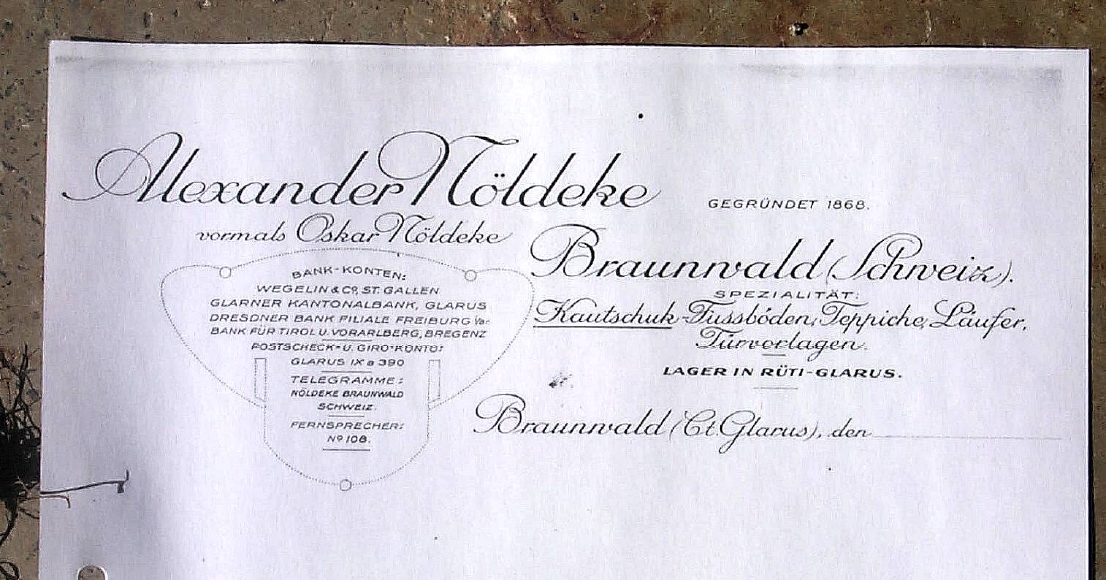 Alexander Nöldeke
GEGRÜNDET 1868.
vormals Oskar Nöldeke
Braunwald (Schweiz).
SPEZIALITÄT:
Kautschuk-Fussböden, Teppiche, Läufer,
Türvorlagen.
LAGER IN RÜTI-GLARUS.
BANK-KONTEN:
WEGELIN & Co, ST. GALLEN
GLARNER KANTONALBANK, GLARUS
DRESDNER BANK FILIALE FREIBURG i/Br.
BANK FÜR TIROL U. VORARLBERG, BREGENZ
POSTSCHECK- U. GIRO-KONTO:
GLARUS IX a 390
TELEGRAMME:
NÖLDEKE BRAUNWALD
SCHWEIZ.
FERNSPRECHER:
No 108.
Braunwald (Ct. Glarus), den